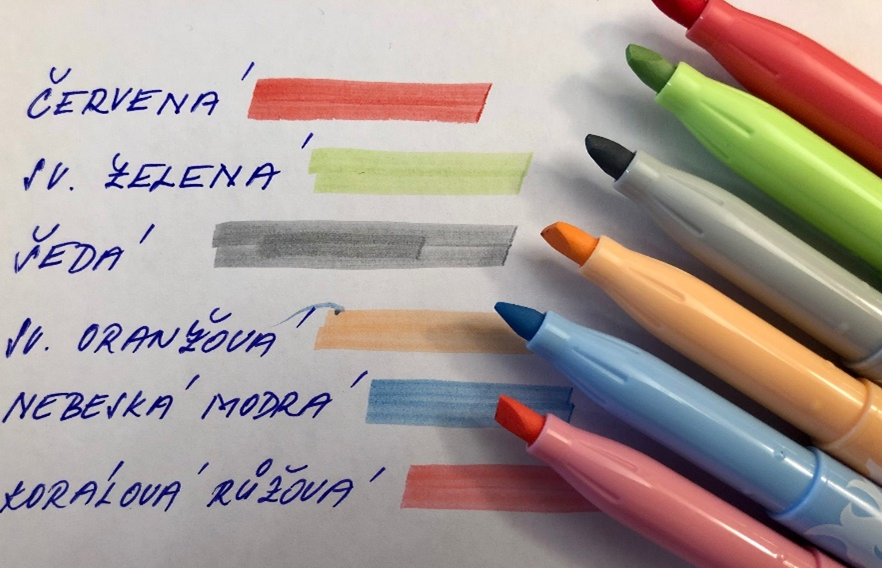 ČERVENÁ
SV. ZELENÁ
ŠEDÁ
SV. ORANŽOVÁ
NEBESKÁ MODRÁ
KORÁLOVÁ RŮŽOVÁ